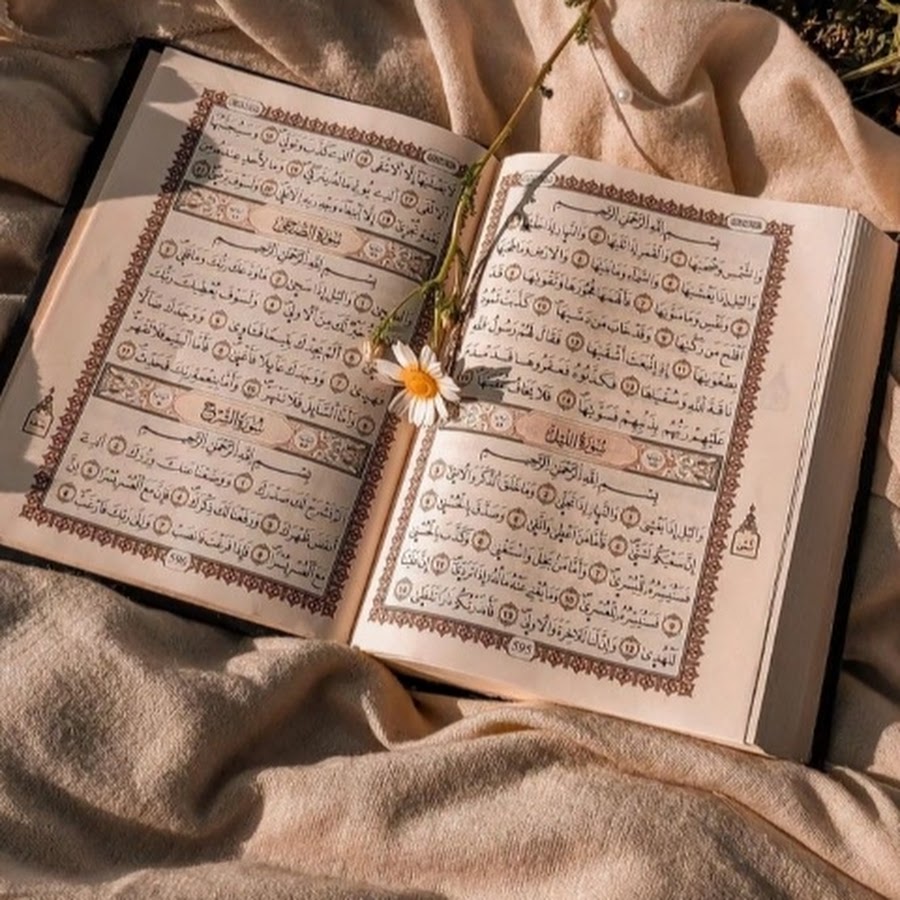 بسم الله الرحمن الرحيم
والشمس وضحيها ١ والقمر إذا تليها ٢ والنهار إذا
واليل إذا يغشيها ٤ والسماء وما بنيها ٥ والارض وما طحيها
٦ ونفس وما سويها ٧ فألهمها فجورها وتقويها ٨ قد
افلح من زكيها ٩ وقد خاب من دسيها ١٠ كذبت ثمود
بطغويها ١١ إذ انبعث أشقيها ١٢ فقال لهم رسول الله
ناقة الله وسقياها ١٣ فكذبوه فعقروها فدمدم
عليهم ربهم بذنبهم فسويها ١٤ فلا يخاف
سورة الليل
بسم الله الرحمن الرحيم
واليل إذا يغشى ١ والنهار إذا تجلى ٢ وما خلق الذكر والانثى ٣
إن سعيكم لشتى ٤ فأما من أعطى واتقى ٥ وصدق بالحسنى ٦
فسنيسره لليسرى ٧ وأما من بخل واستغنى ٨ وكذب بالحسنى
٩ فسنيسره للعسرى ١٠ وما يغني عنه ماله إذا تردى ١١ إن علينا
للهدى ١٢ وإن لنا للاخرة والاولى ١٣ فأنذرتكم نارا تلظى ١٤
595
لا يصليها إلا الاشقى ١٥ الذي كذب وتولى ١٦ وسيجنبها
الاتقى ١٧ الذي يوتي ماله يتزكى ١٨ وما لأحد عنده من
نعمة تجزى ١٩ إلا ابتغاء وجه ربه الاعلى ٢٠ ولسوف يرضى ٢١
سورة الضحى
بسم الله الرحمن الرحيم
واليل إذا سجى ٢ ما ودعك ربك وما قلى ٣
خير لك من الاولى ٤ ولسوف يعطيك ربك
ألم يجدك يتيما فـاوى ٦ ووجدك ضالا
فهدى ٧ ووجدك عائلا فأغنى ٨ فأما اليتيم فلا تقهر
٩ وأما السائل فلا تنهر ١٠ وأما بنعمة ربك فحدث ١١
سورة الشرح
بسم الله الرحمن الرحيم
ألم نشرح لك صدرك ١ ووضعنا عنك وزرك ٢ الذي
أنقض ظهرك ٣ ورفعنا لك ذكرك ٤ فإن مع العسر يسرا ٥ إن
مع العسر يسرا ٦ فإذا فرغت فانصب ٧ وإلى ربك فارغب ٨
596